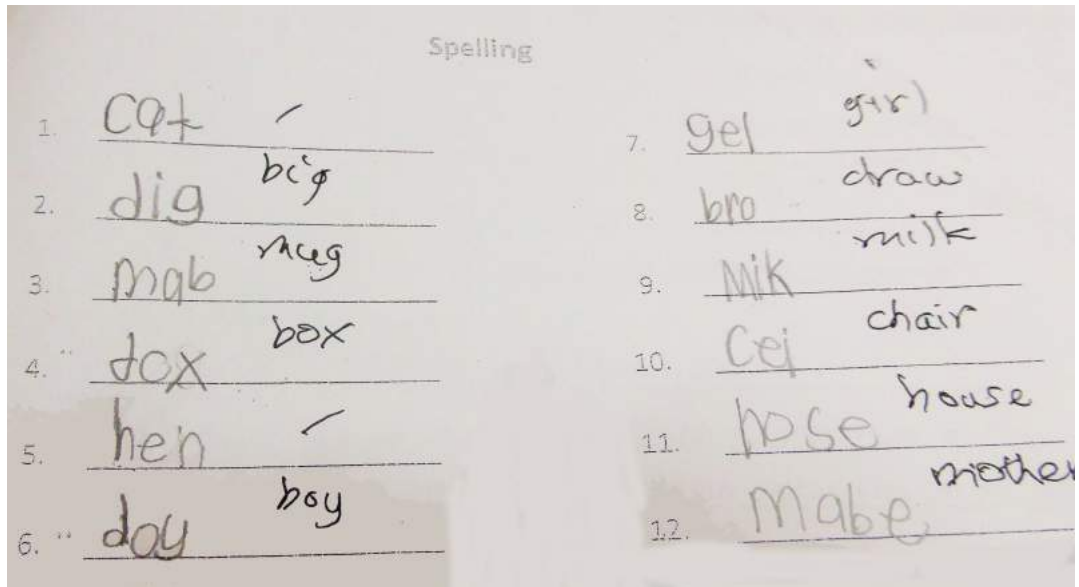 Spelling
1. cat
2. dig big
3. mab mug
4. dox box
5. hen
6. doy boy
7. gel girl
8. bro draw
9. Mik milk
10. Cej chair
11. hose house
12. Mabe mother